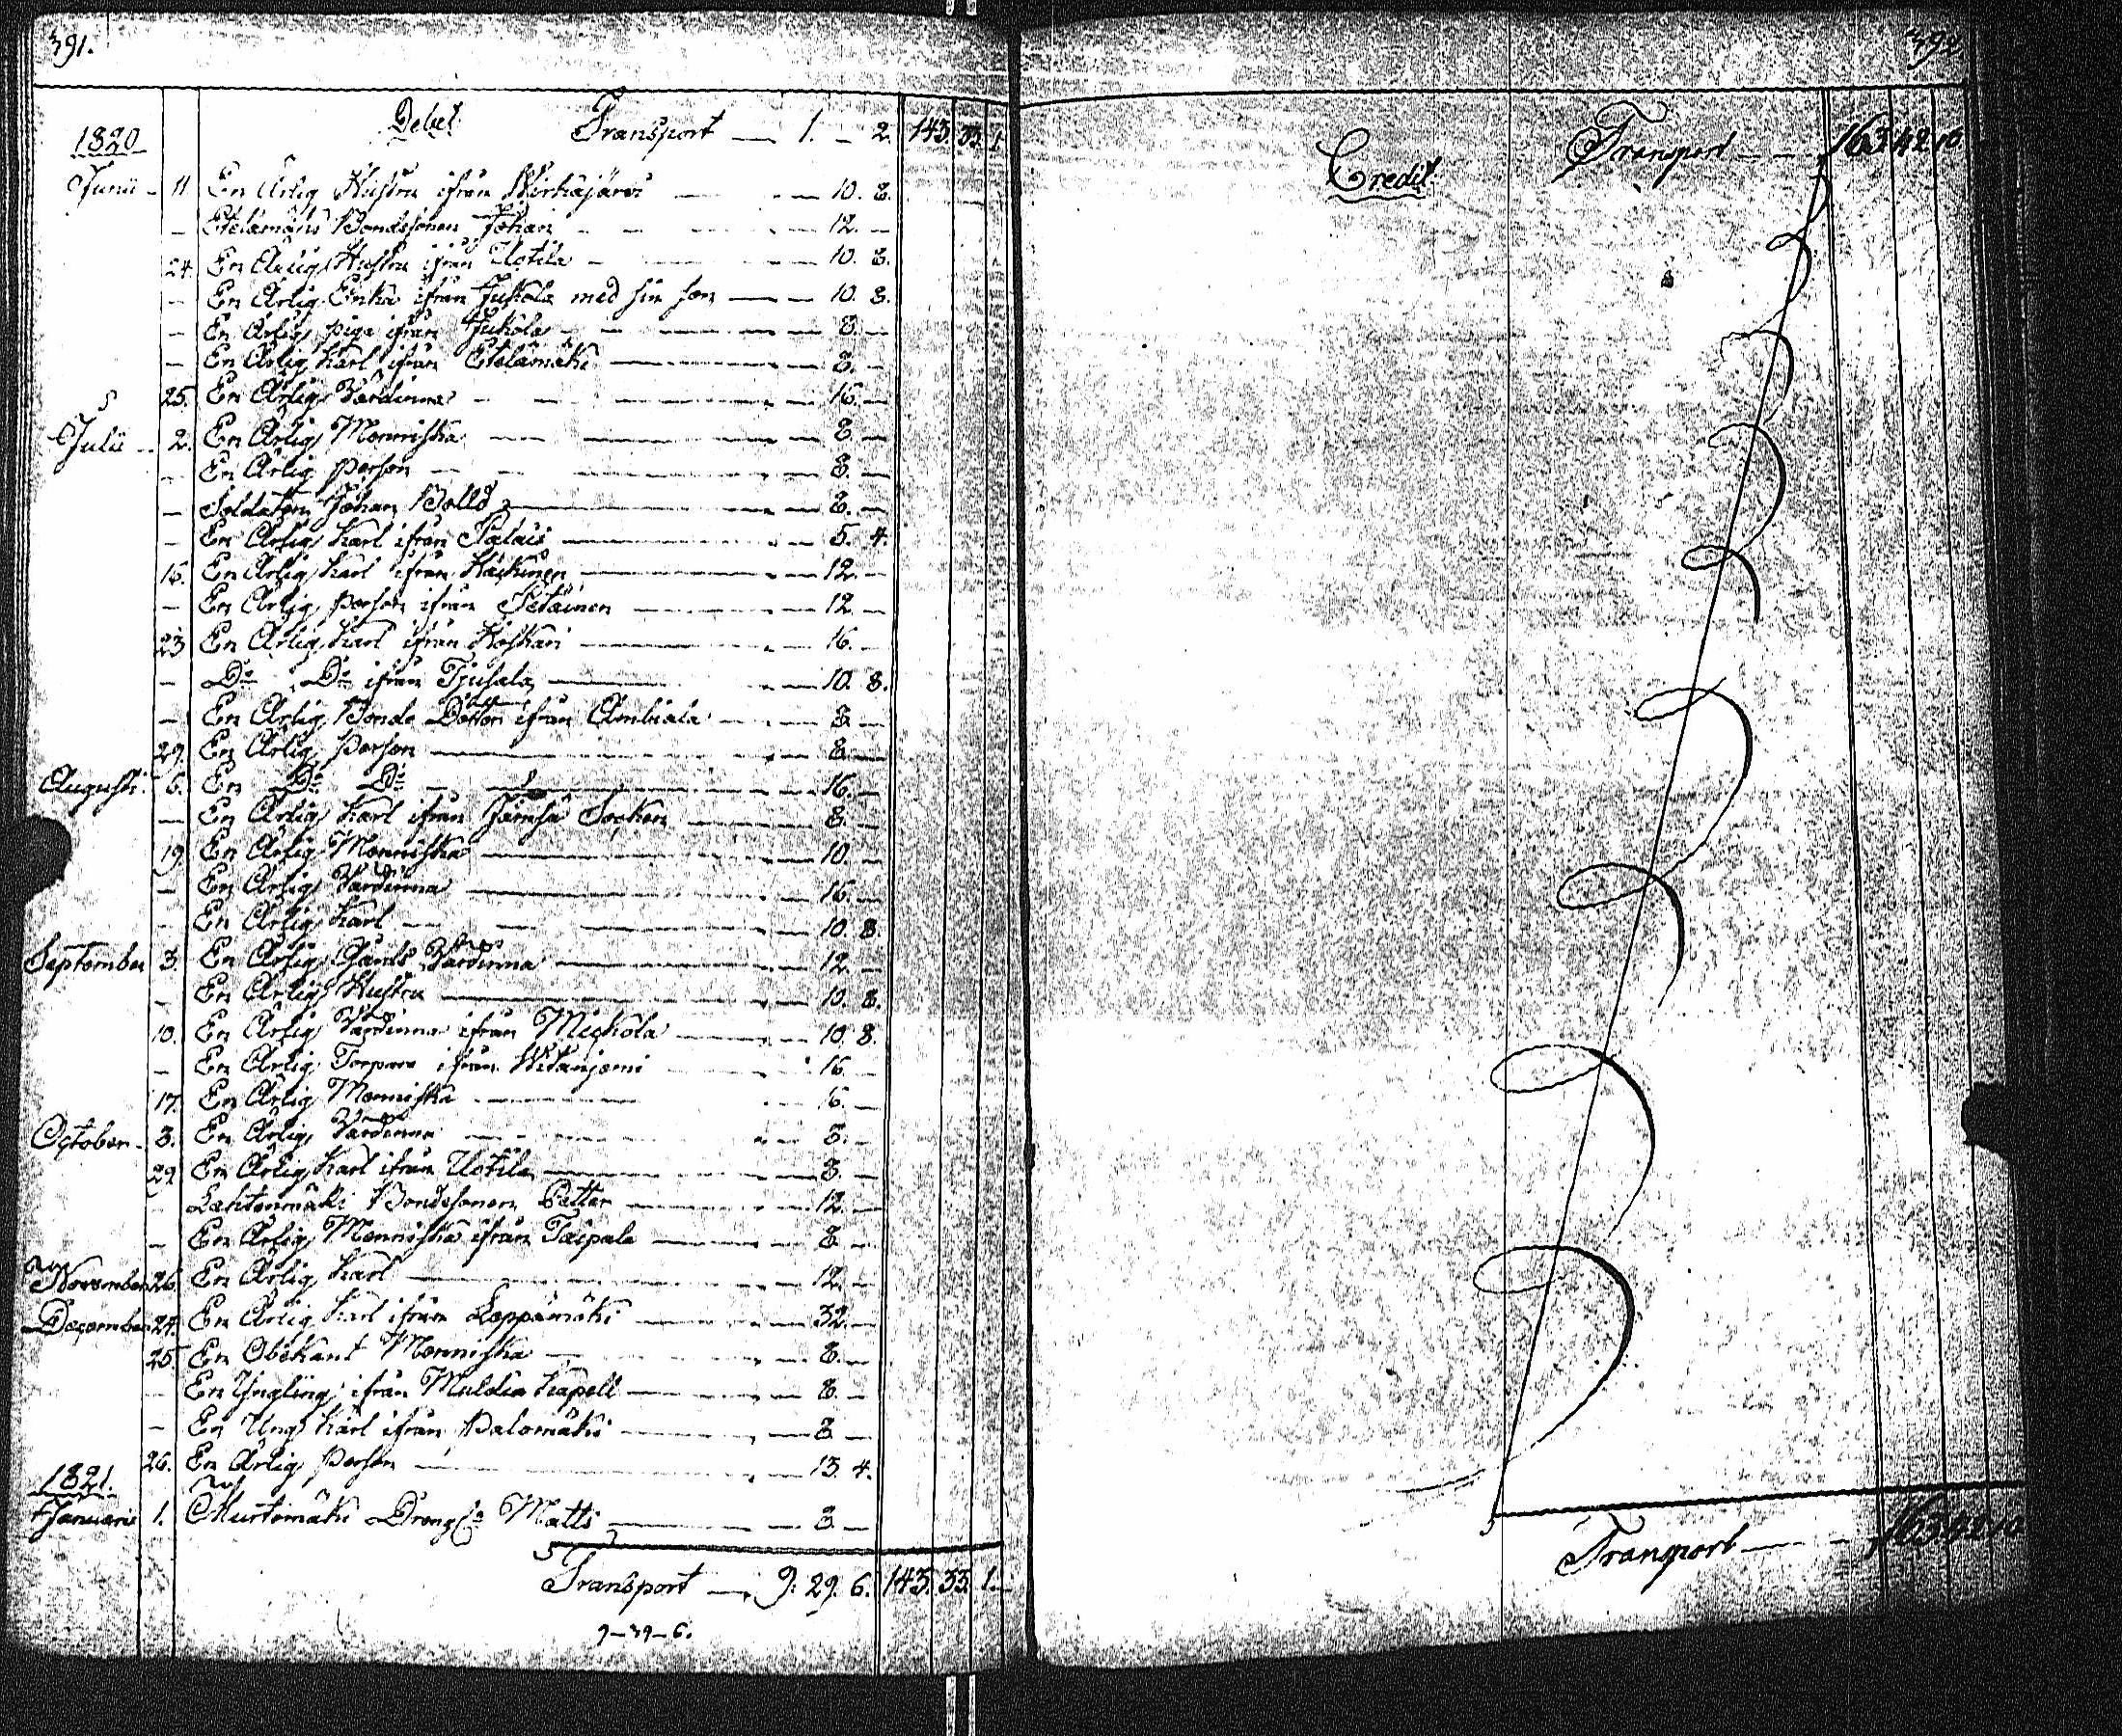 391.
Debet
1820 Transport — 1. — 2. 143. 33. 1.
Junii — 11. En Ärlig Hustru ifrån Wirhajärvi — 10. 8.
— Etelämäki Bondesonen Johan — 12. —
24. En Ärlig Hustru ifrån Uotila — 10. 8.
— En Ärlig Enka ifrån Jukola med sin son — 10. 8.
— En Ärlig piga ifrån Jukola — 8. —
— En Ärlig Karl ifrån Etelämäki — 8. —
25. En Ärlig Värdinna — 16. —
Julii — 2. En Ärlig Menniska — 8. —
— En Ärlig Person — 8. —
— Soldaten Johan Bolld — 8. —
— En Ärlig Karl ifrån — 5. 4.
16. En Ärlig Karl ifrån — 12. —
— En Ärlig Person ifrån — 12. —
23. En Ärlig Karl ifrån Koskari — 16. —
— Do Do ifrån — 10. 8.
— En Ärlig Bonde Dotter ifrån Ambiala — 8. —
29. En Ärlig Person — 8. —
Augusti. 6. En Do Do — 16. —
— En Ärlig Karl ifrån Jämsä Socken — 8. —
19. En Ärlig Menniska — 10. —
— En Ärlig Värdinna — 16. —
En Ärlig Karl — 10. 8.
September 3. En Ärlig Värdinna — 12. —
— En Ärlig Hustru — 10. 8.
10. En Ärlig Värdinna ifrån Mickola — 10. 8.
— En Ärlig Torpare ifrån — 16. —
17. En Ärlig Menniska — 16. —
October — 3. En Ärlig Värdinna — 8. —
29. En Ärlig Karl ifrån Uotila — 8. —
Lahtenmäki Bondesonen Petter — 12. —
— En Ärlig Menniska ifrån Taipale — 8. —
November 26. En Ärlig Karl — 12. —
December 24. En Ärlig Karl ifrån Leppämäki — 32. —
25. En Obekant Menniska — 8. —
— En Yngling ifrån Muldia Kapell — 8. —
— En Ung Karl ifrån Palomäki — 8. —
26. En Ärlig Person — 13. 4.
1821.
Januarii 1. Murtomäki Matts — 8. —
Transport — 9. 29. 6. 143. 33. 1.
9 — 39 — 6.
392
Transport — 163 42 10
Credit
Transport — 163 42 10